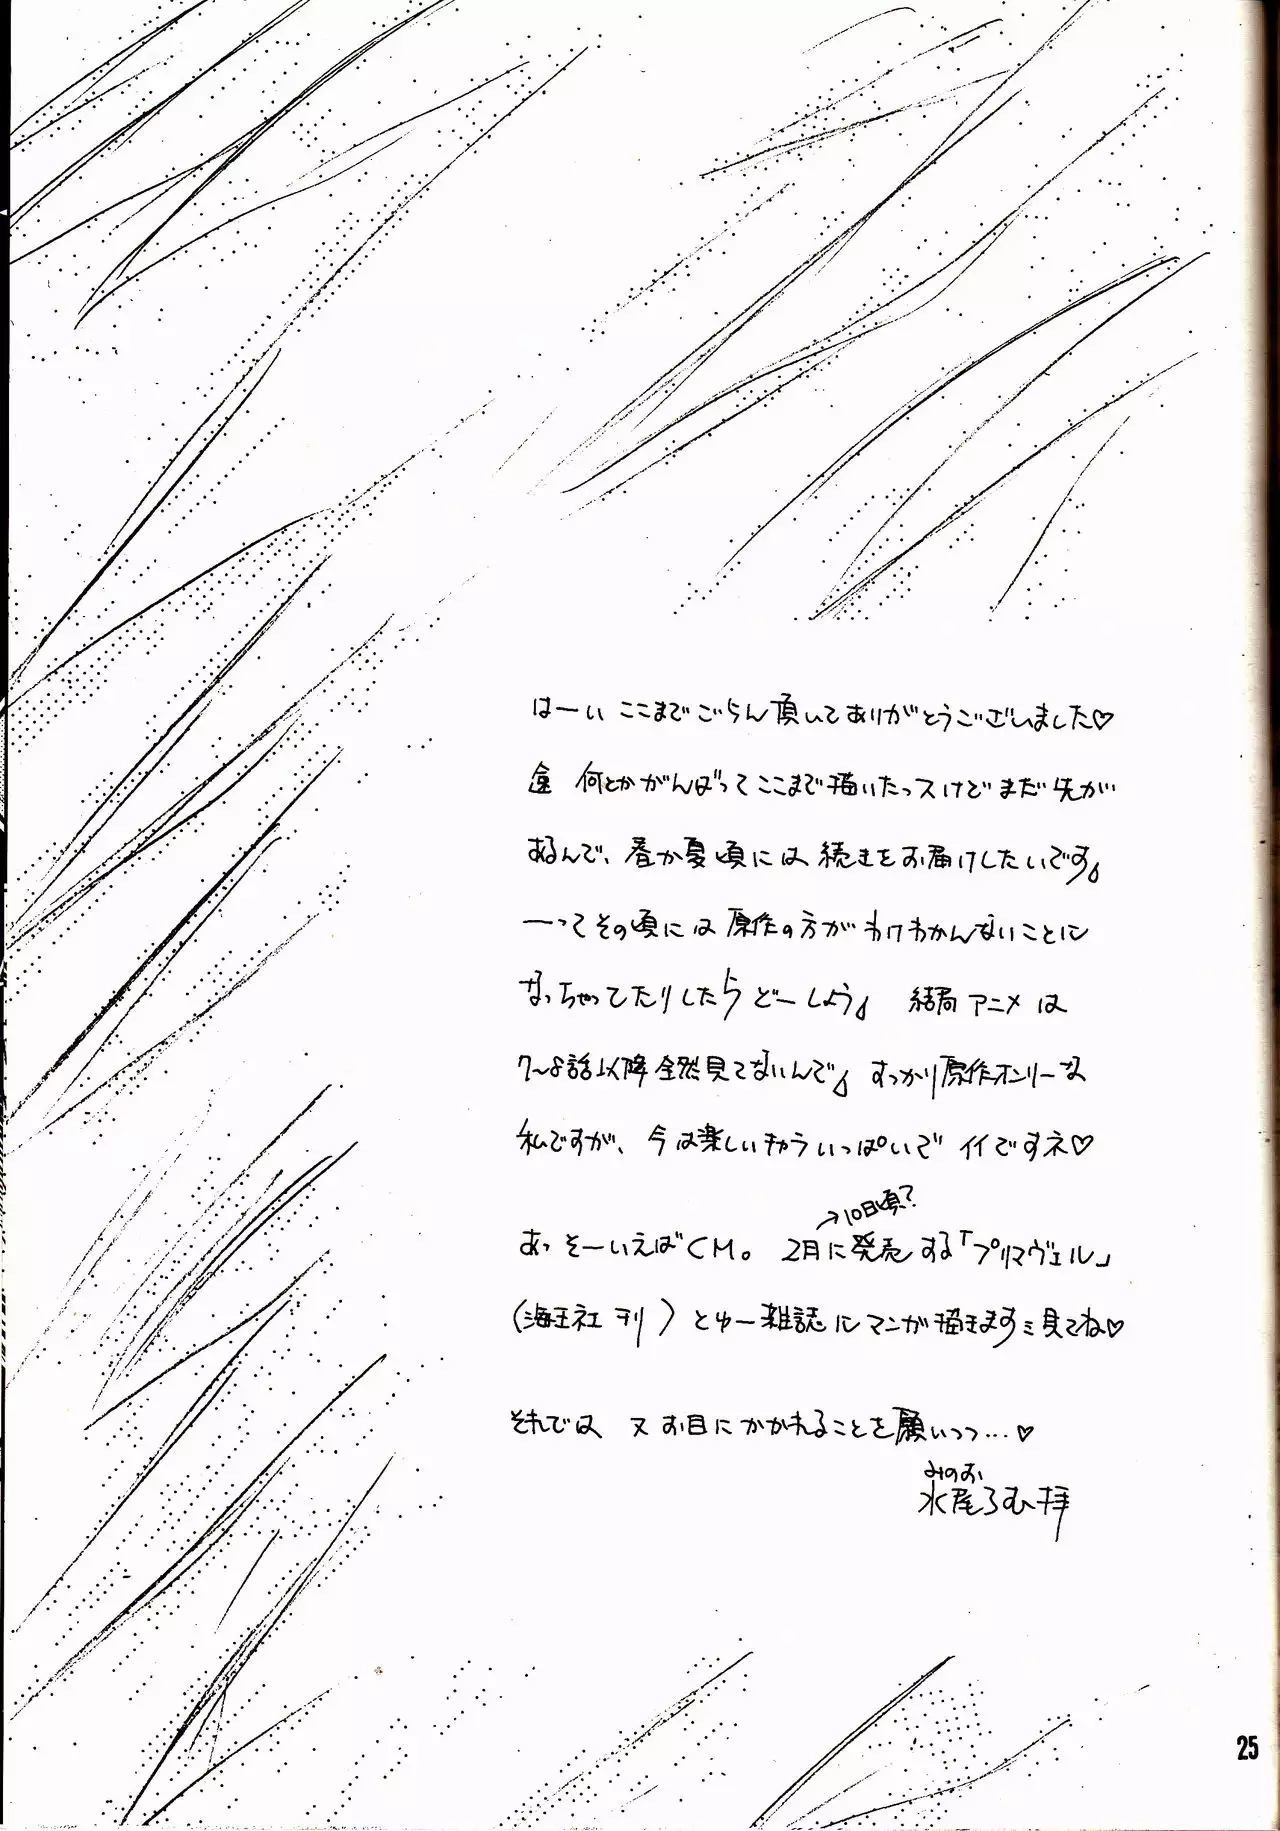 はーい ここまでごらん頂いてありがとうございました♡
何とかがんばってここまで描いたっスけどまだ先が
あるんで、春か夏頃には続きをお届けしたいです
ーってその頃には原作の方がわけわかんないことに
なっちゃってたりしたらどーしよう 結局アニメは
7〜8話以降全然見てないんで すっかり原作オンリーな
私ですが、今は楽しいキャラいっぱいでイイですネ♡
→10日頃?
あっそーいえばCM。2月に発売する「プリマヴェール」
(海王社刊)とゆー雑誌にマンガ描きます 見てね♡
それでは 又お目にかかれることを願いつつ…♡
みのお
水尾ろむ拝
25